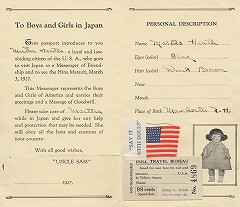 To Boys and Girls in Japan
THIS passport introduces to you
a loyal and law-
abiding citizen of the U. S. A., who goes
to visit Japan as a Messenger of Friend-
ship and to see the Hina Matsuri, March
3, 1927.
This Messenger represents the Boys
and Girls of America and carries their
greetings and a Message of Goodwill.
Please take care of Martha
while in Japan and give her any help
and protection that may be needed. She
will obey all the laws and customs of
your country.
With all good wishes,
"UNCLE SAM"
1927.
PERSONAL DESCRIPTION
Name Martha Heath
Eyes (color) Blue
Hair (color) Brown
Nose
Mouth
Place of Birth Manchester N.H.
"SAY IT
WITH DOLLS"
DOLL TRAVEL BUREAU
U.S.A.
to Tokyo, Japan.
99 cents
No.